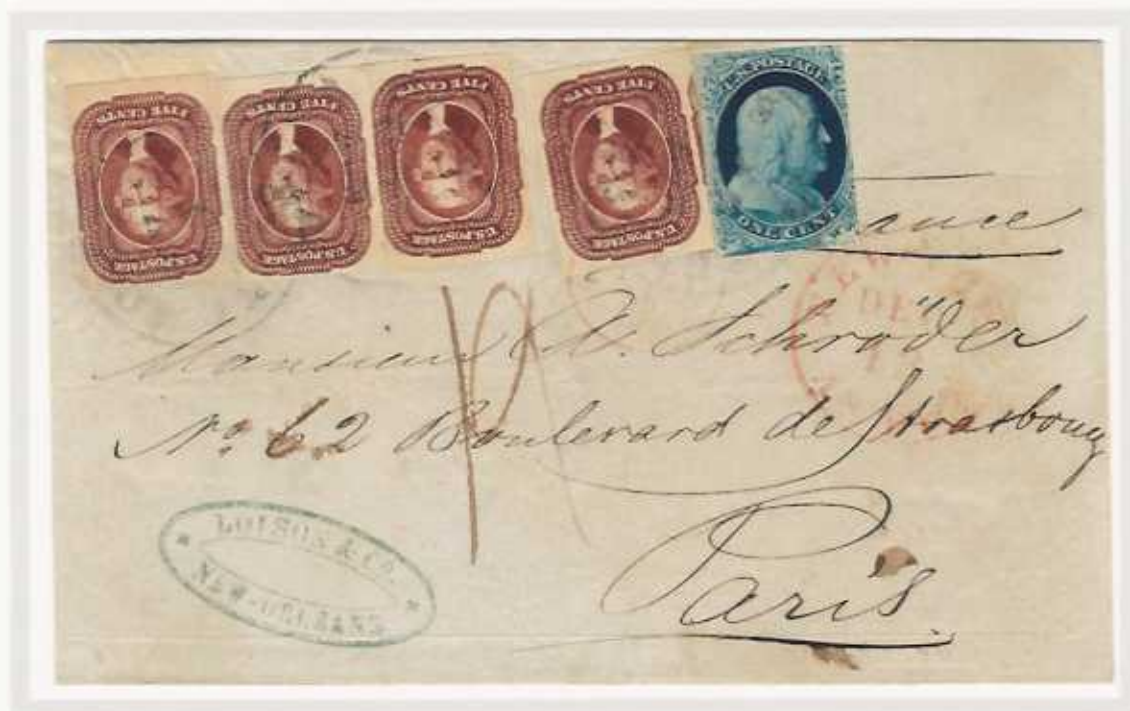 FIVE CENTS
U.S.POSTAGE
FIVE CENTS
U.S.POSTAGE
FIVE CENTS
U.S.POSTAGE
FIVE CENTS
U.S.POSTAGE
U.S.POSTAGE
ONE CENT
Monsieur A. Schröder
No. 62 Boulevard de Strasbourg
Paris.
LOISON & Co.
NEW-ORLEANS